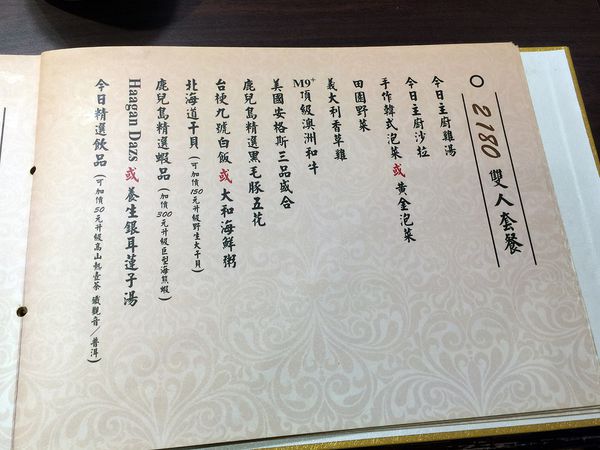 2180 雙人套餐
今日主廚雞湯
今日主廚沙拉
手作韓式泡菜或黃金泡菜
田園野菜
義大利香草雞
M9+頂級澳洲和牛
美國安格斯三品盛合
鹿兒島精選黑毛豚五花
台梗九號白飯或大和海鮮粥
北海道干貝(可加價150元升級野生大干貝)
鹿兒島精選蝦品(加價300元升級巨型海熊蝦)
Haagan Dazs 或 養生銀耳蓮子湯
今日精選飲品(可加價50元升級高山熱壺茶 鐵觀音/普洱)